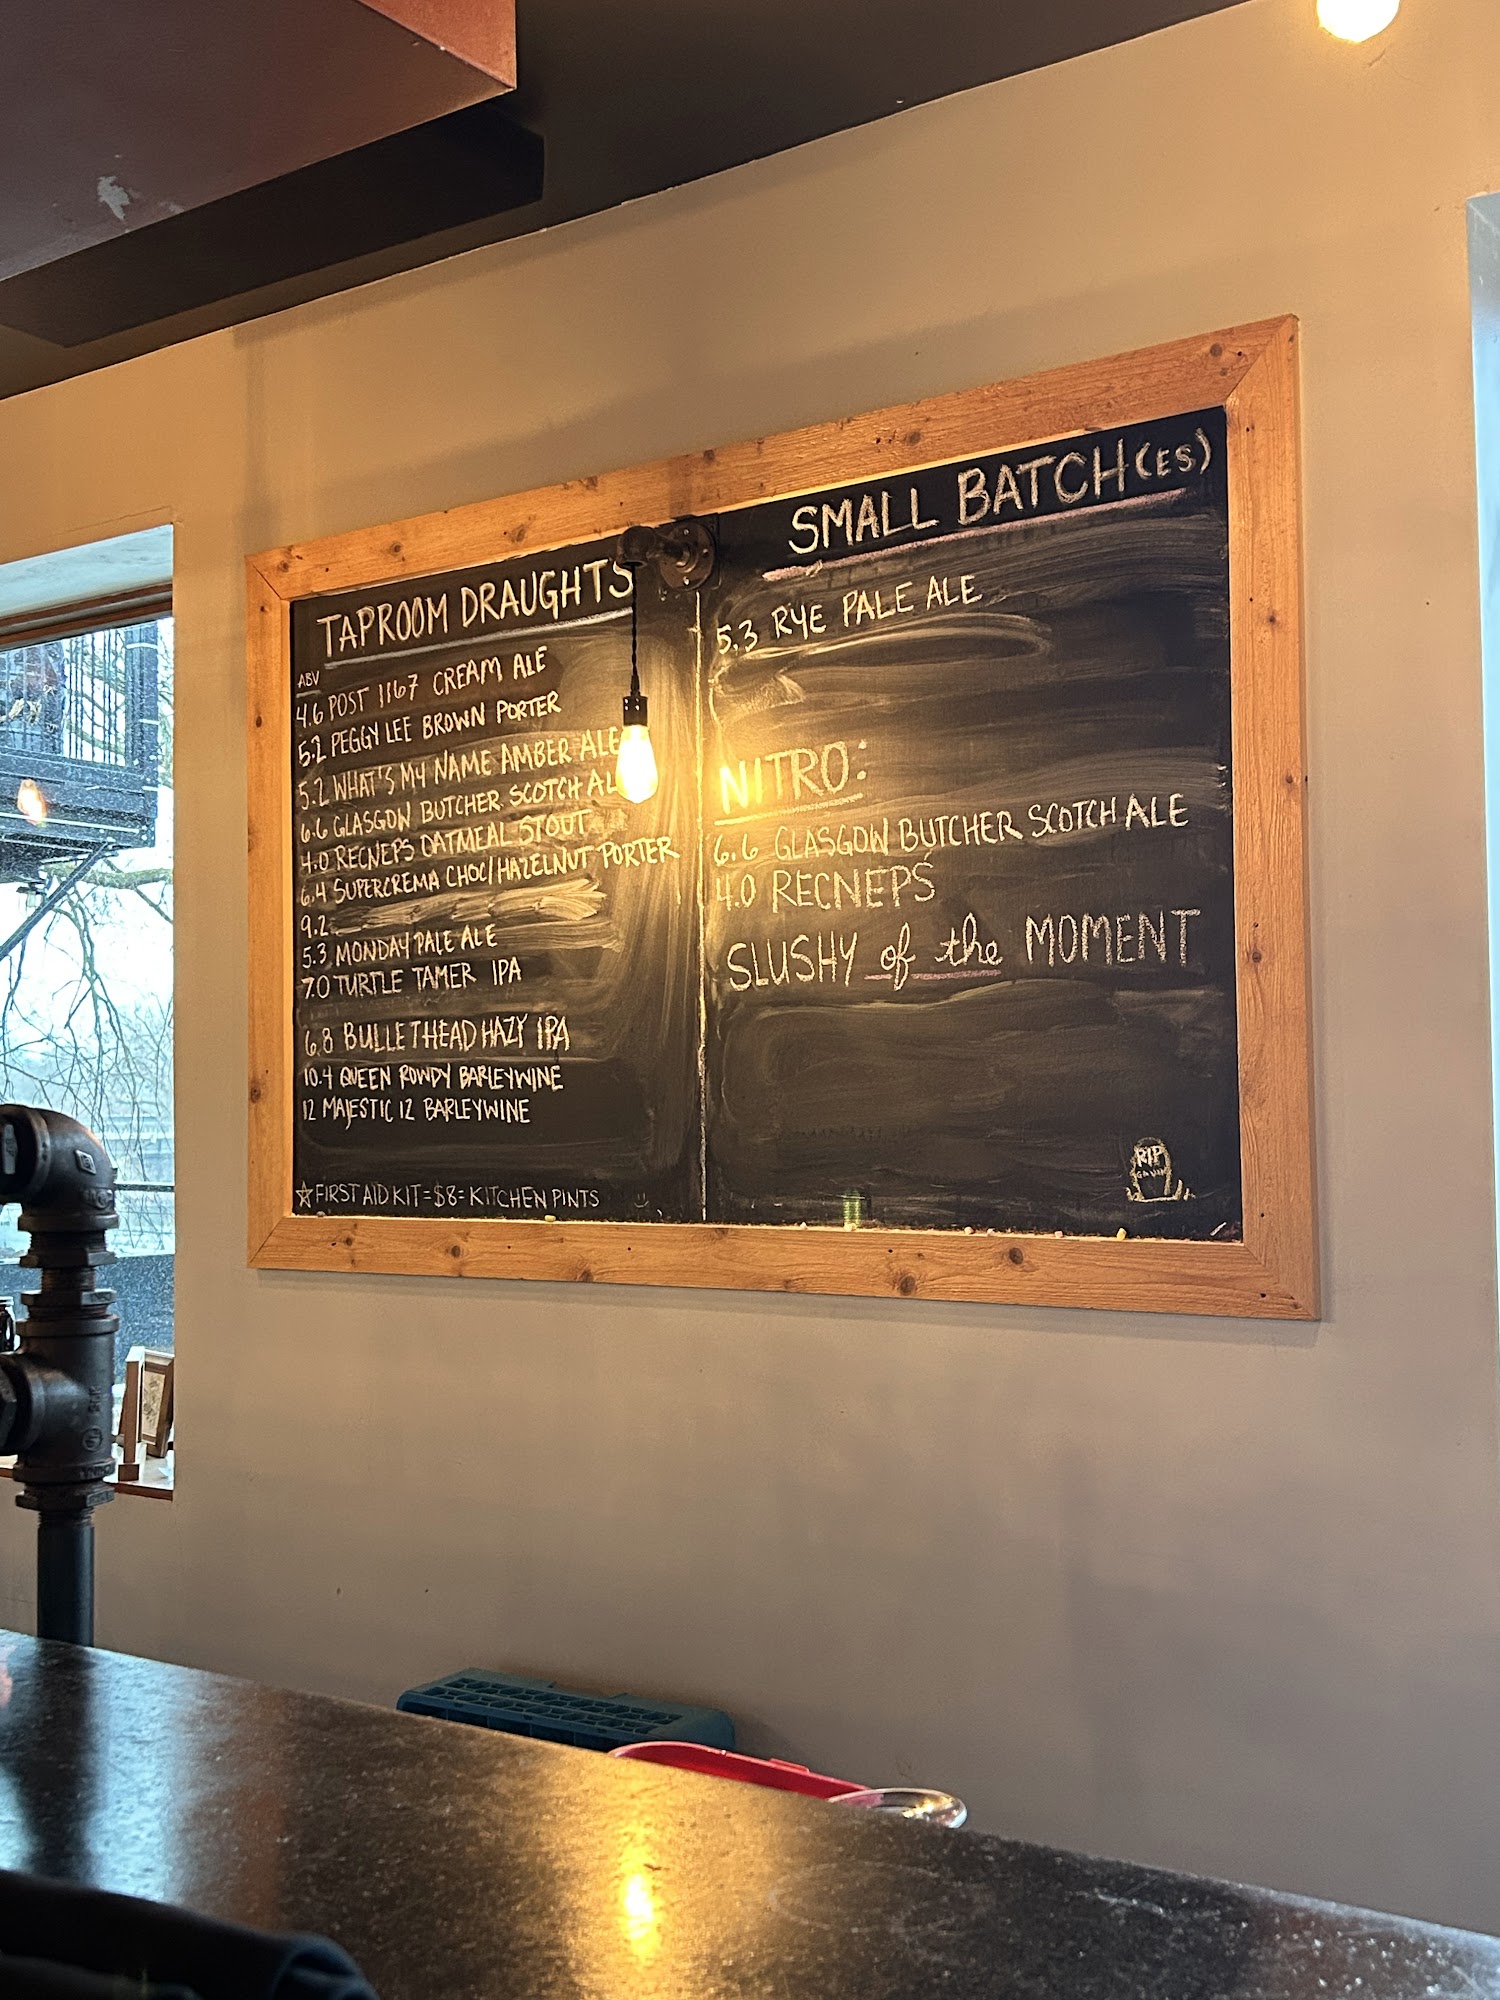 TAPROOM DRAUGHTS
ABV
4.6 POST 1167 CREAM ALE
5.2 PEGGY LEE BROWN PORTER
5.2 WHAT'S MY NAME AMBER ALE
6.6 GLASGOW BUTCHER SCOTCH AL
4.0 RECNEPS OATMEAL STOUT
6.4 SUPERCREMA CHOC/HAZELNUT PORTER
9.2
5.3 MONDAY PALE ALE
7.0 TURTLE TAMER IPA
6.8 BULLETHEAD HAZY IPA
10.4 QUEEN ROWDY BARLEYWINE
12 MAJESTIC 12 BARLEYWINE
☆FIRST AID KIT=$8=KITCHEN PINTS
SMALL BATCH(ES)
5.3 RYE PALE ALE
NITRO:
6.6 GLASGOW BUTCHER SCOTCH ALE
4.0 RECNEPS
SLUSHY of the MOMENT
RIP